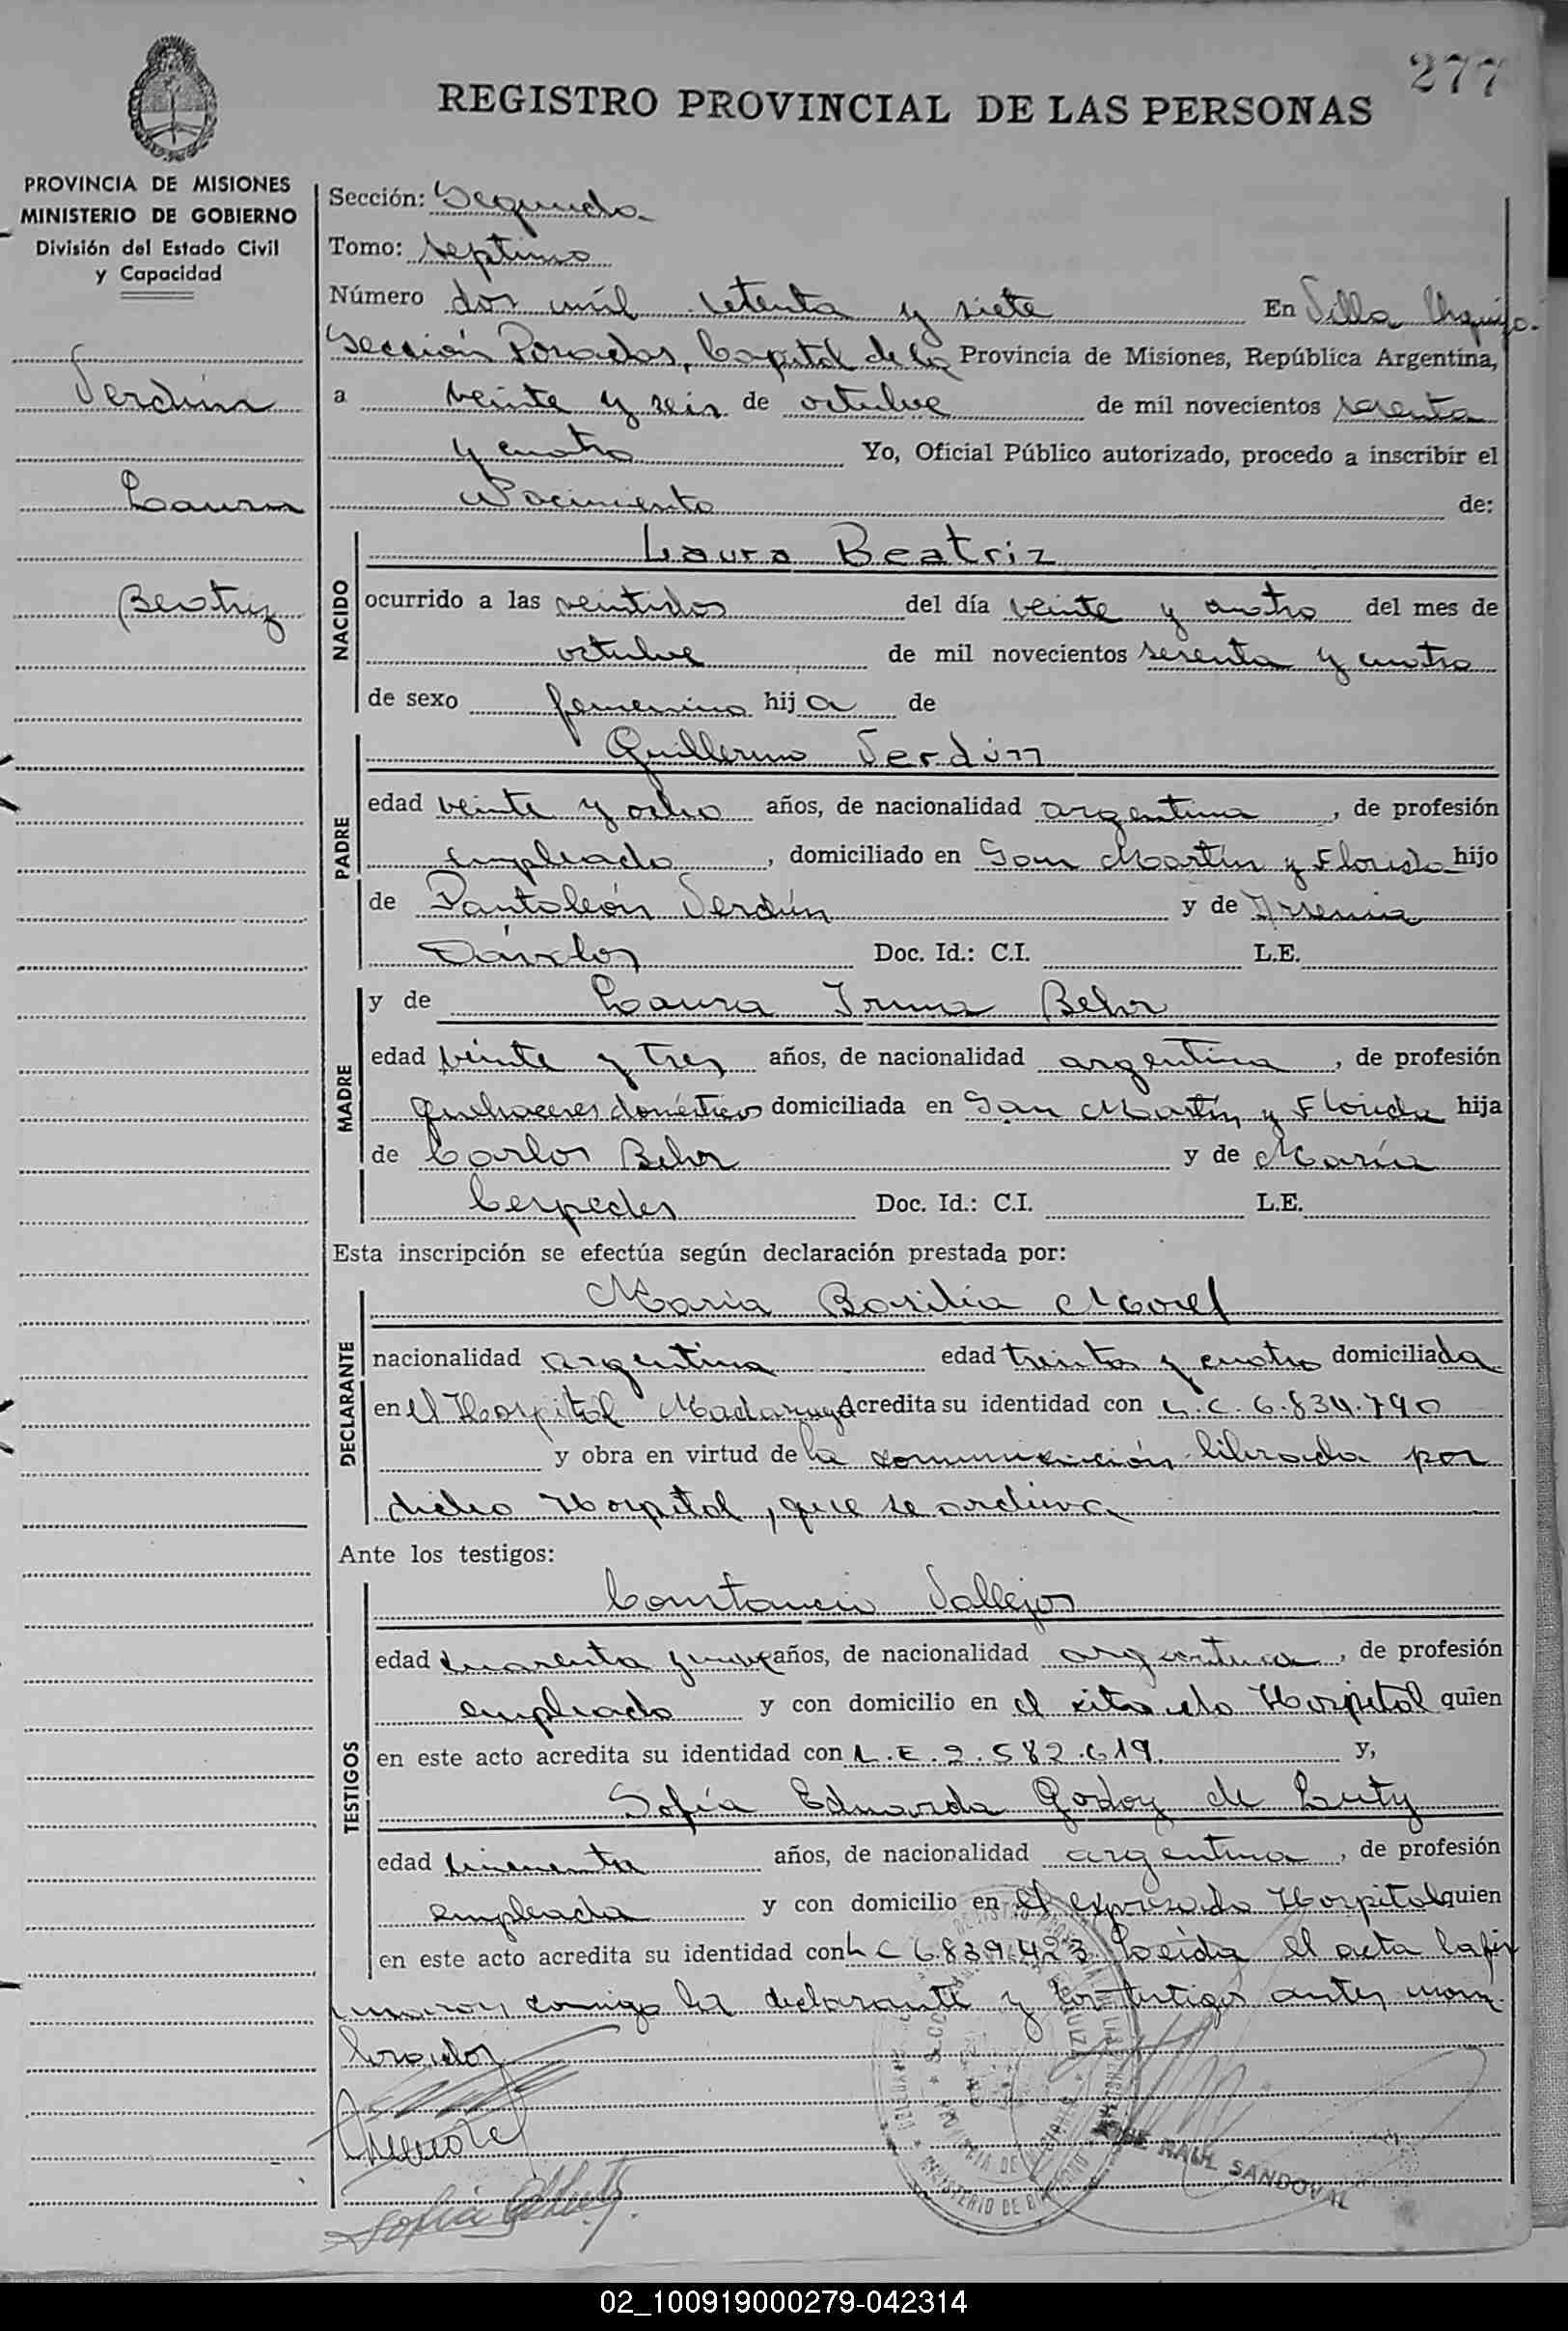 277
REGISTRO PROVINCIAL DE LAS PERSONAS
PROVINCIA DE MISIONES
MINISTERIO DE GOBIERNO
División del Estado Civil
y Capacidad
Verdún
Laura
Beatriz
Sección: Segunda
Tomo: septimo
Número dos mil setenta y siete En Villa Urquiza.
Sección Posadas, Capital de la Provincia de Misiones, República Argentina,
a veinte y seis de octubre de mil novecientos sesenta
y cuatro Yo, Oficial Público autorizado, procedo a inscribir el
Nacimiento de:
NACIDO
Laura Beatriz
ocurrido a las veintidos del día veinte y cuatro del mes de
octubre de mil novecientos sesenta y cuatro
de sexo femenino hija de
PADRE
Guillermo Verdún
edad veinte y ocho años, de nacionalidad argentina, de profesión
empleado, domiciliado en San Martín y Florida hijo
de Pantaleón Verdún y de Arsenia
Dávalos Doc. Id.: C.I. L.E.
MADRE
y de Laura Irma Behr
edad veinte y tres años, de nacionalidad argentina, de profesión
quehaceres domésticos domiciliada en San Martín y Florida hija
de Carlos Behr y de María
Cespedes Doc. Id.: C.I. L.E.
Esta inscripción se efectúa según declaración prestada por:
DECLARANTE
María Basilia Morel
nacionalidad argentina edad treinta y cuatro domiciliada
en el Hospital Madariaga Acredita su identidad con L.C. 6.834.790
y obra en virtud de la comunicación librada por
dicho Hospital, que se archiva
Ante los testigos:
TESTIGOS
Constancio Vallejos
edad cuarenta y nueve años, de nacionalidad argentina, de profesión
empleado y con domicilio en el citado Hospital quien
en este acto acredita su identidad con L.E. 2.582.619. y,
Sofía Eduarda Godoy de Luty
edad cincuenta años, de nacionalidad argentina, de profesión
empleada y con domicilio en el expresado Hospital quien
en este acto acredita su identidad con L C 6.839.423. Leída el acta la fir
maron conmigo la declarante y los testigos antes nom
brados
RAUL SANDOVAL
02_100919000279-042314